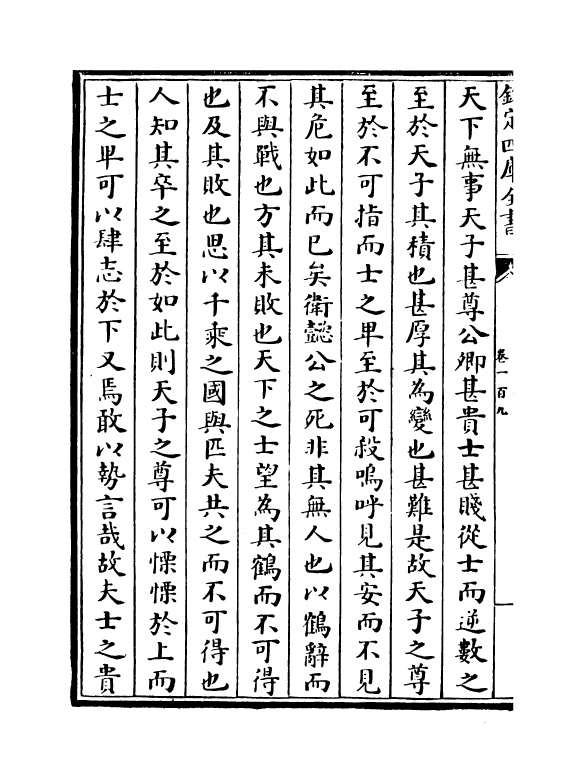 欽定四庫全書
卷一百九
天下無事天子甚尊公卿甚貴士甚賤從士而逆數之
至於天子其積也甚厚其為變也甚難是故天子之尊
至於不可指而士之卑至於可殺嗚呼見其安而不見
其危如此而已矣衛懿公之死非其無人也以鶴辭而
不與戰也方其未敗也天下之士望為其鶴而不可得
也及其敗也思以千乘之國與匹夫共之而不可得也
人知其卒之至於如此則天子之尊可以慄慄於上而
士之卑可以肆志於下又焉敢以勢言哉故夫士之貴